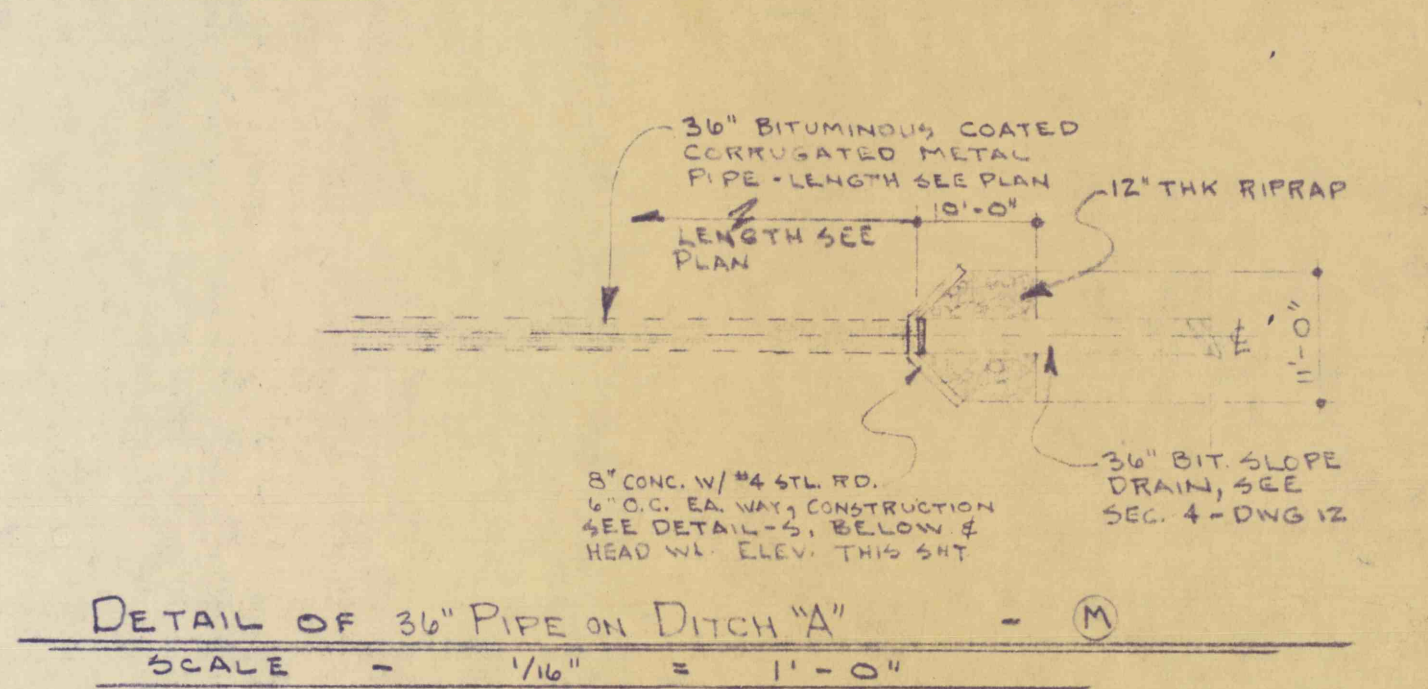 36" BITUMINOUS COATED
CORRUGATED METAL
PIPE - LENGTH SEE PLAN
12" THK RIPRAP
10'-0"
LENGTH SEE
PLAN
8" CONC. W/ #4 STL. RD.
6" O.C. EA. WAY, CONSTRUCTION
SEE DETAIL-S, BELOW &
HEAD WL. ELEV. THIS SHT
36" BIT. SLOPE
DRAIN, SEE
SEC. 4 - DWG 12
DETAIL OF 36" PIPE ON DITCH "A" - M
SCALE - 1/16" = 1'-0"